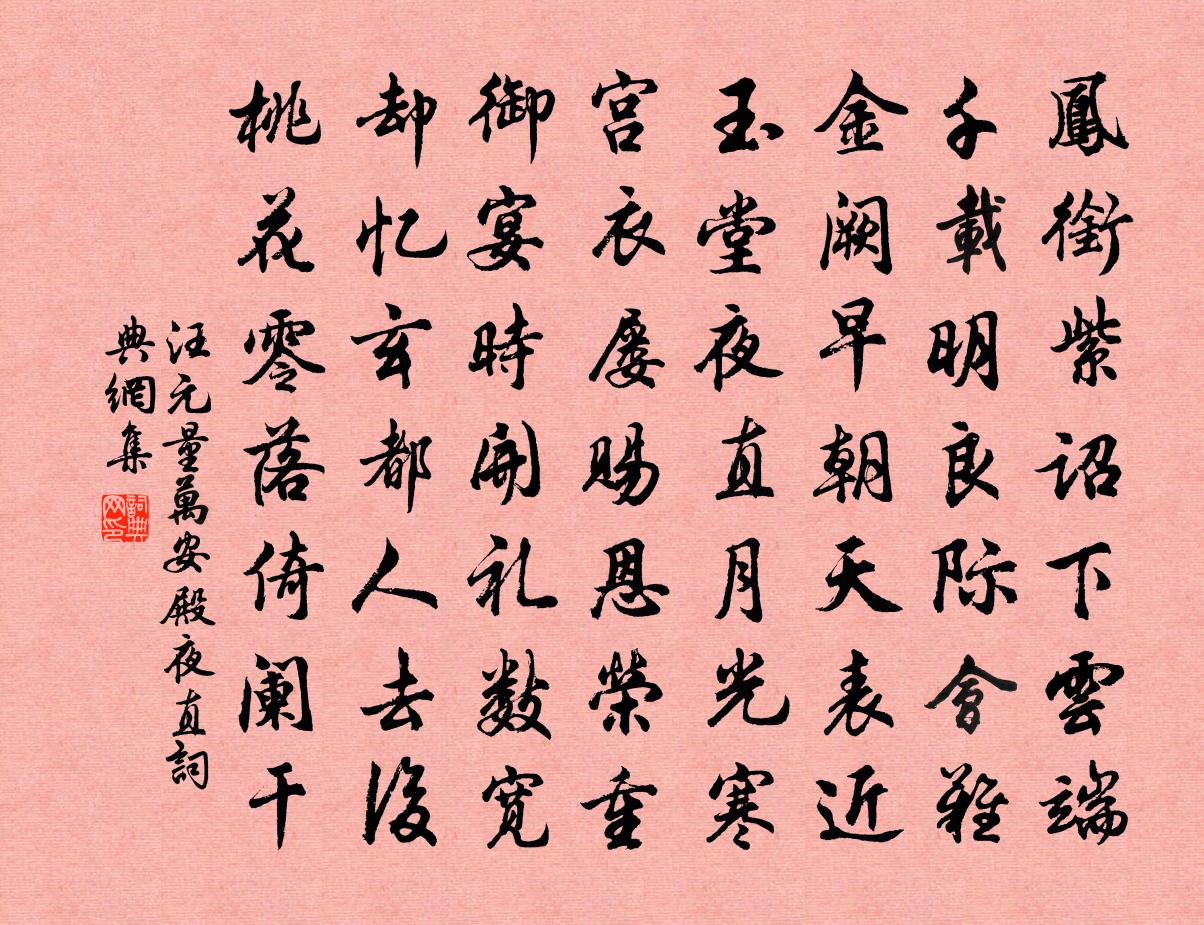 鳳銜紫詔下雲端
千載明良际會難
金阙早朝天表近
玉堂夜直月光寒
宫衣屡賜恩榮重
御宴時開礼數寛
却忆玄都人去後
桃花零落倚阑干
汪元量萬安殿夜直詞
典網集
詞典
网印